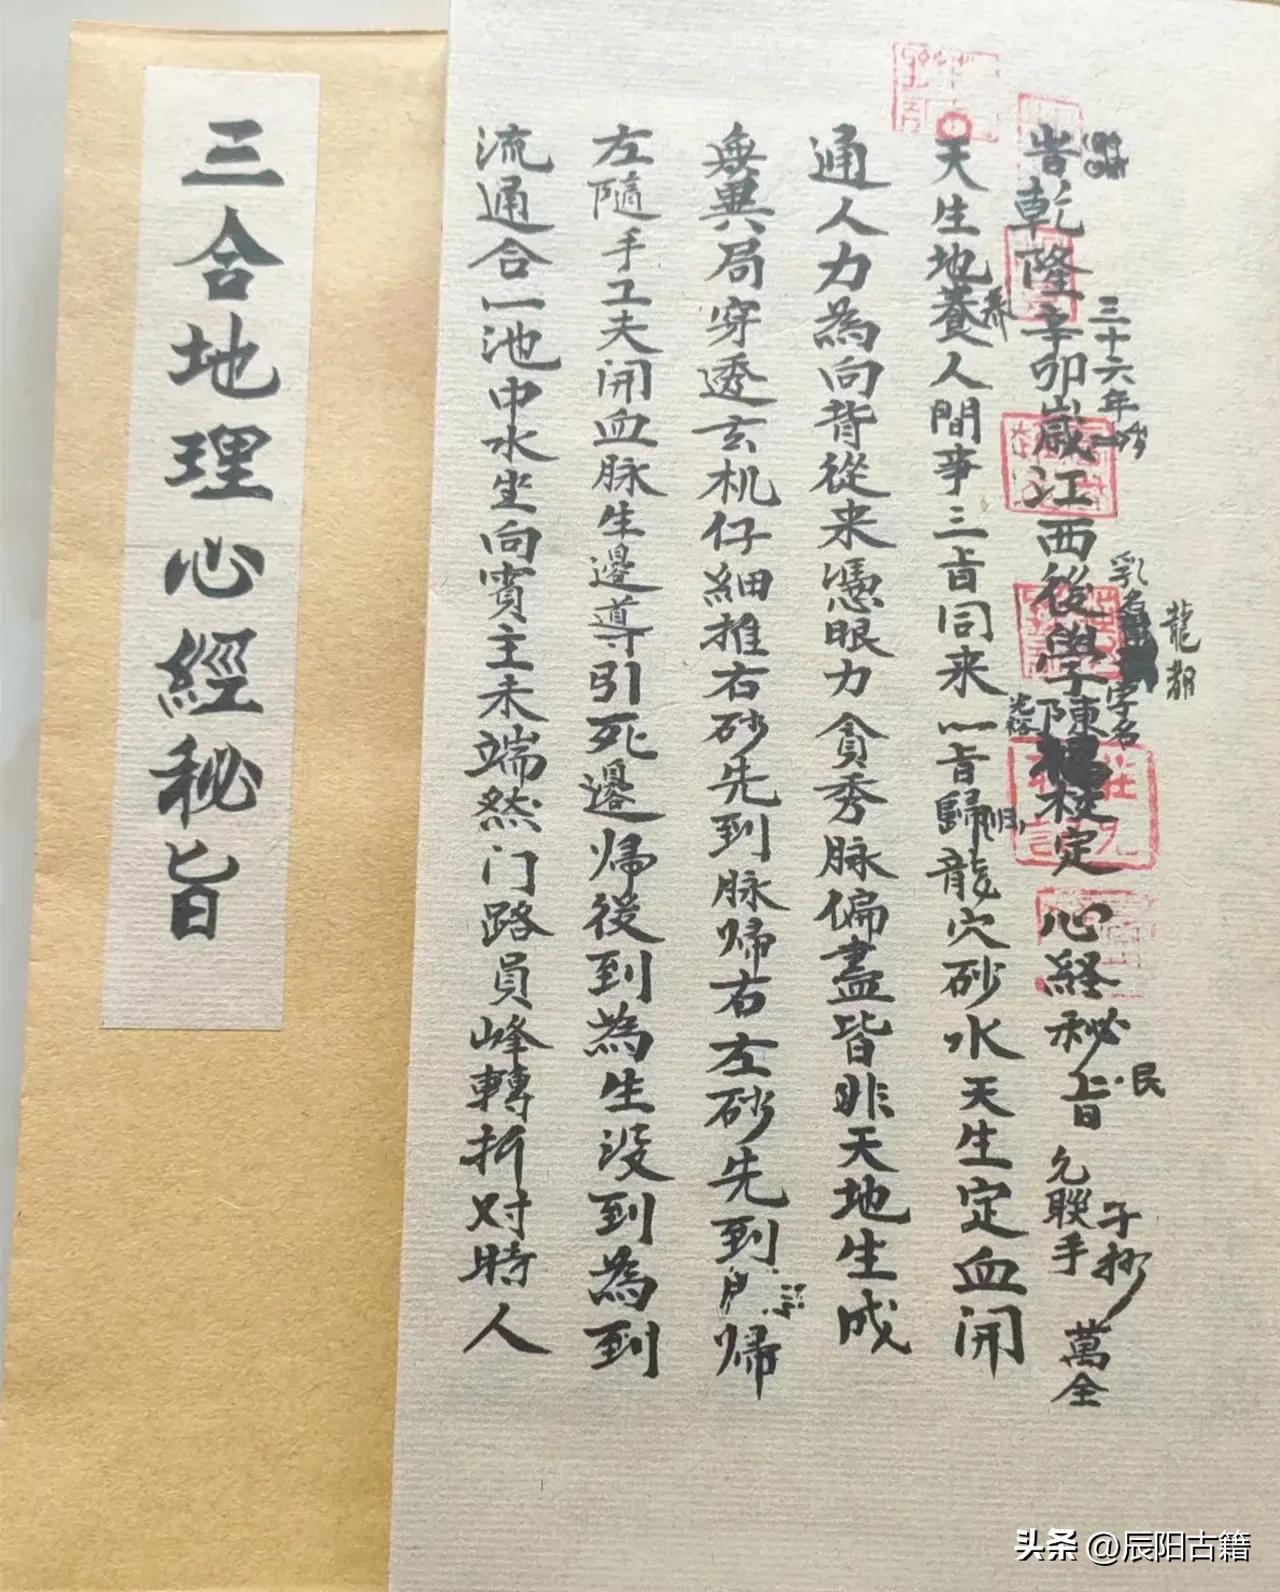 三合地理心經秘旨
旹乾隆辛卯歲江西後學陳校定心経秘旨
三十六年
乳名
字名
龍
民
允聯手
子抄
萬全
天生地養人間事三旨同来一旨歸龍穴砂水天生定血開
通人力為向背從来憑眼力貪秀脉偏盡皆非天地生成
無異局穿透玄机仔細推右砂先到脉帰右左砂先到帰
左隨手工夫開血脉生邊導引死邊帰後到為生没到為到
流通合一池中水坐向賓主未端然门路員峰轉折对時人
头条 @辰阳古籍